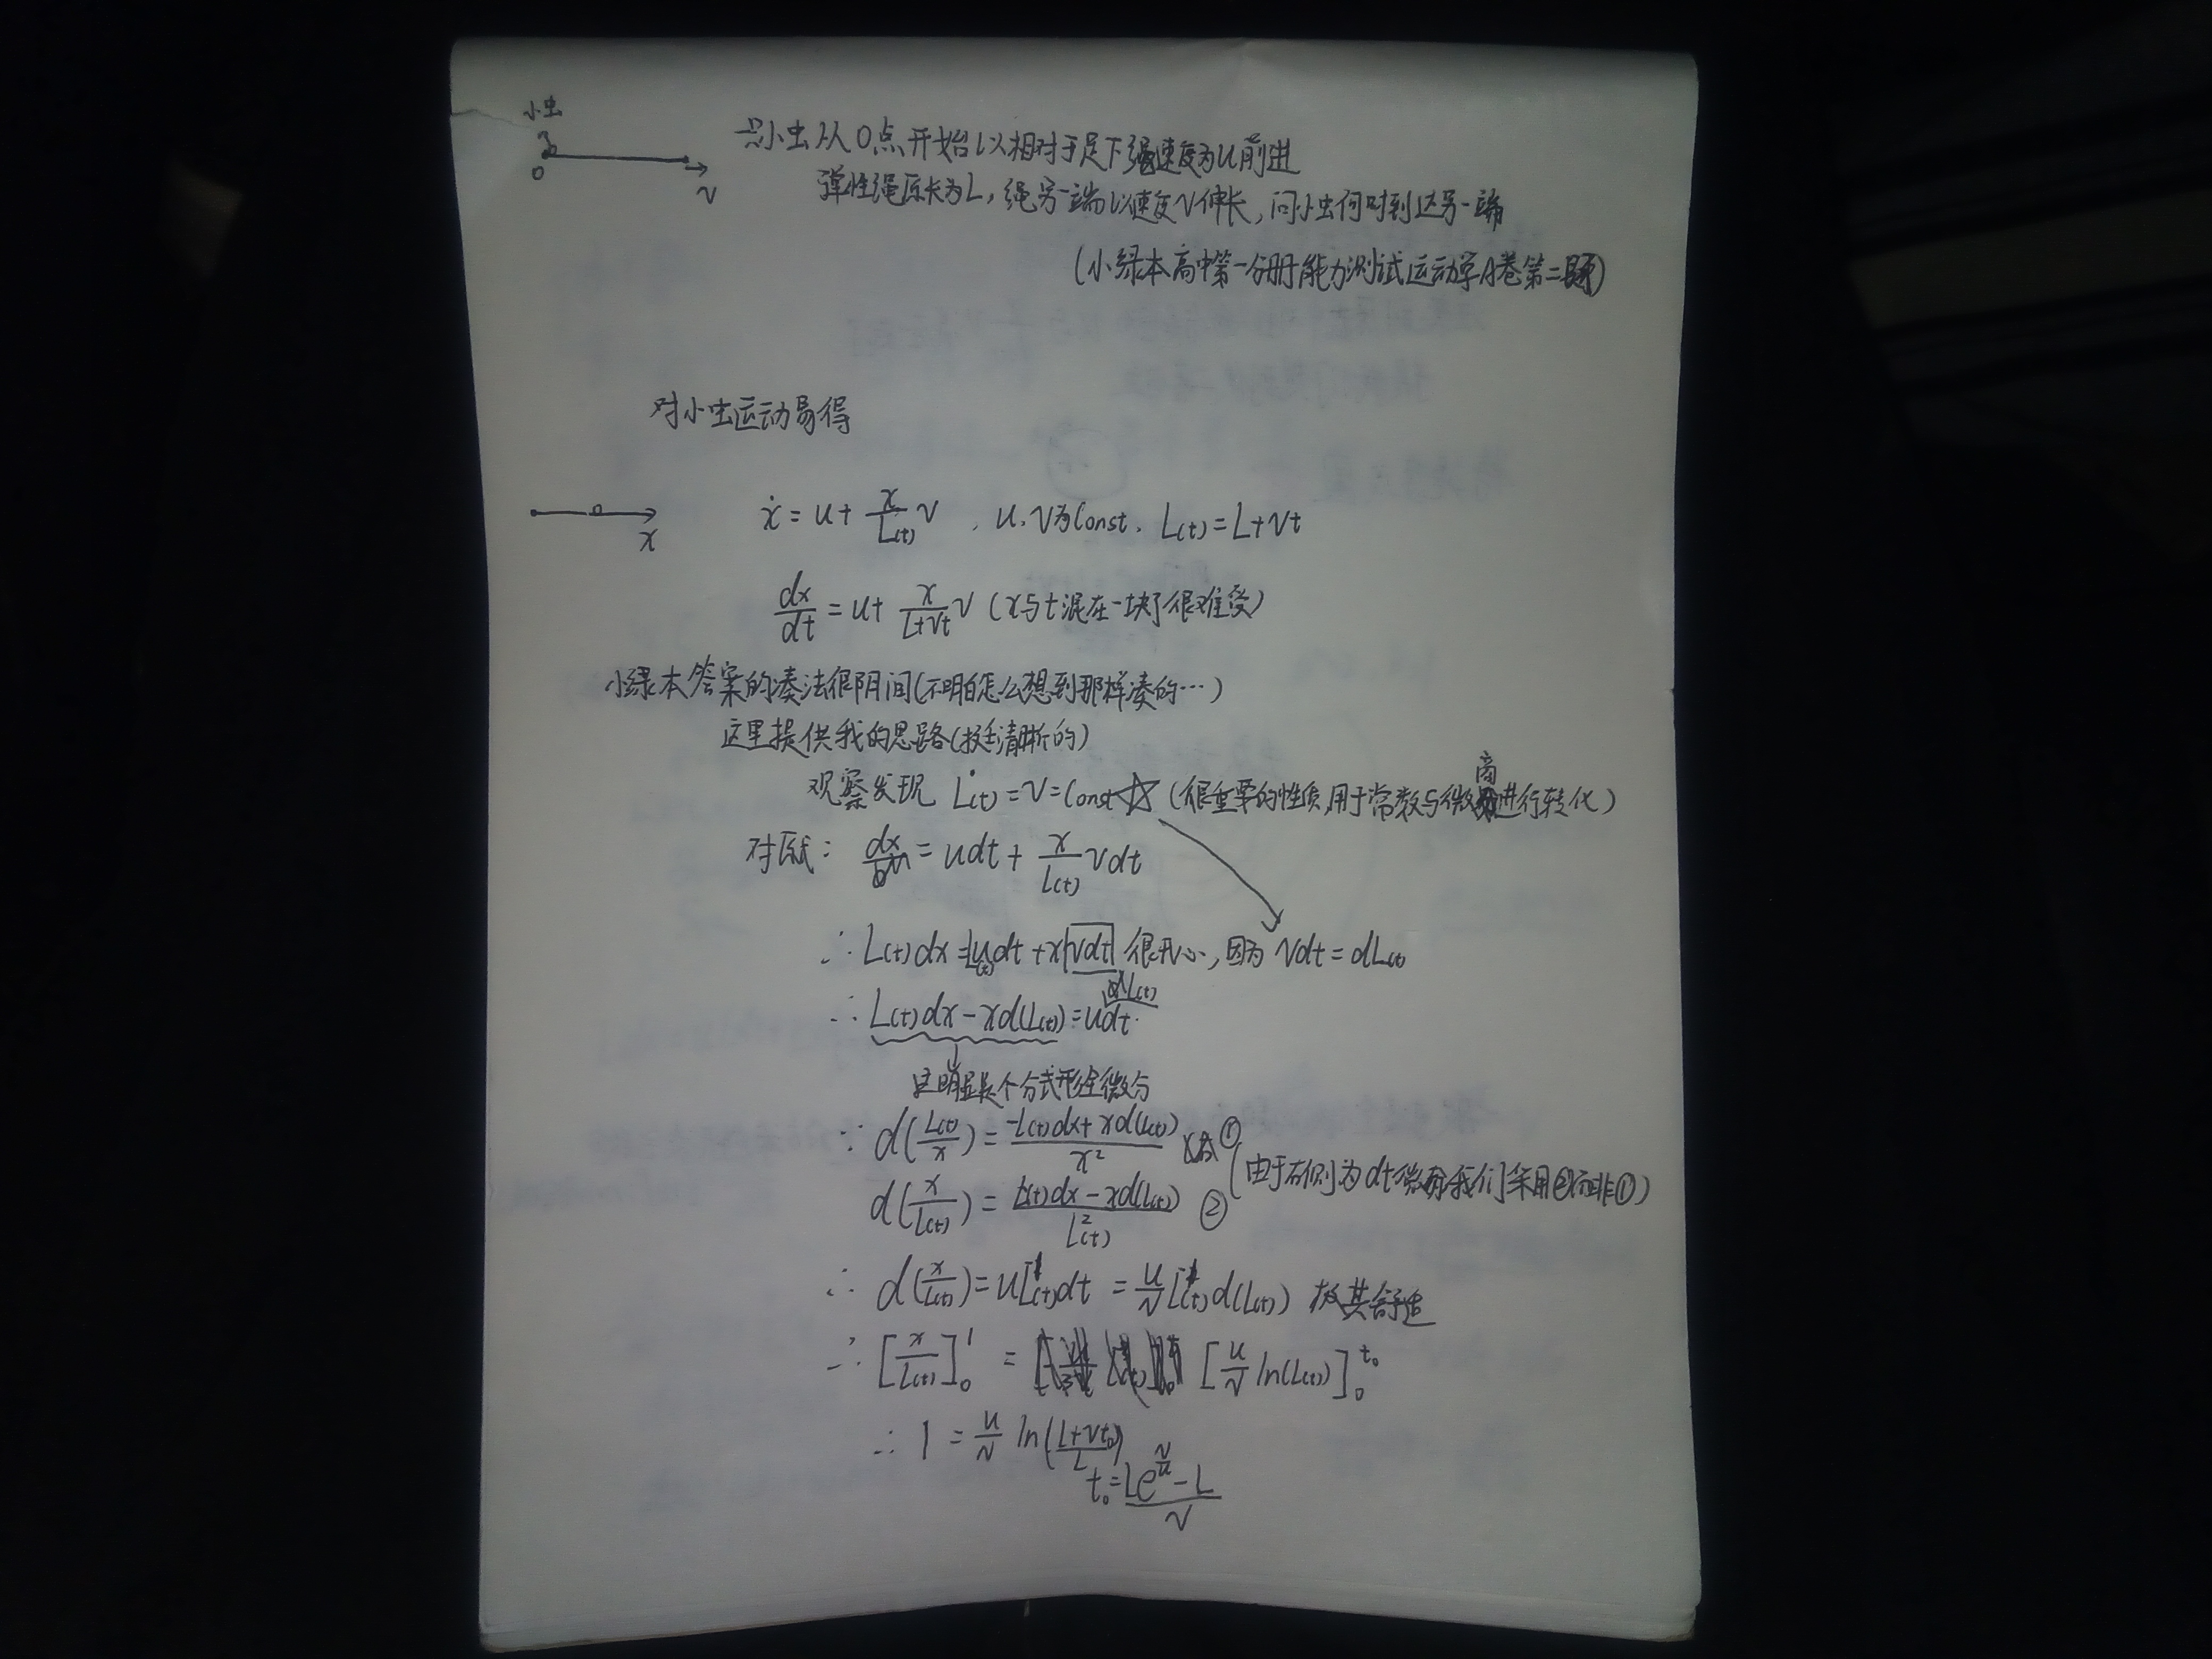 小虫
0
v
一只小虫从0点开始以相对于足下绳速度为u前进
弹性绳原长为L,绳另一端以速度v伸长,问小虫何时到达另一端
(小绿本高中第一分册能力测试运动学A卷第二题)
对小虫运动易得
x
ẋ = u + x/L(t) v , u、v为Const、 L(t) = L+vt
dx/dt = u + x/(L+vt) v (x与t混在一块了很难受)
小绿本答案的凑法很阴间(不明白怎么想到那样凑的…)
这里提供我的思路(挺清晰的)
观察发现 L̇(t) = v = Const ☆ (很重要的性质,用于常数与微商进行转化)
对原式: dx = udt + x/L(t) vdt
∴ L(t)dx = L(t)udt + x vdt 很开心,因为 vdt = dL(t)
dL(t)
∴ L(t)dx − xd(L(t)) = udt·
这明显是个分式形全微分
∵ d(L(t)/x) = (−L(t)dx + xd(L(t)))/x² ①
d(x/L(t)) = (L(t)dx − xd(L(t)))/L²(t) ② (由于右侧为dt微商我们采用②而非①)
∴ d(x/L(t)) = uL⁻¹(t)dt = u/v L⁻¹(t)d(L(t)) 极其舒适
∴ [x/L(t)]₀¹ = [u/v ln(L(t))]₀^t₀
∴ 1 = u/v ln((L+vt₀)/L)
t₀ = (Le^(v/u) − L)/v